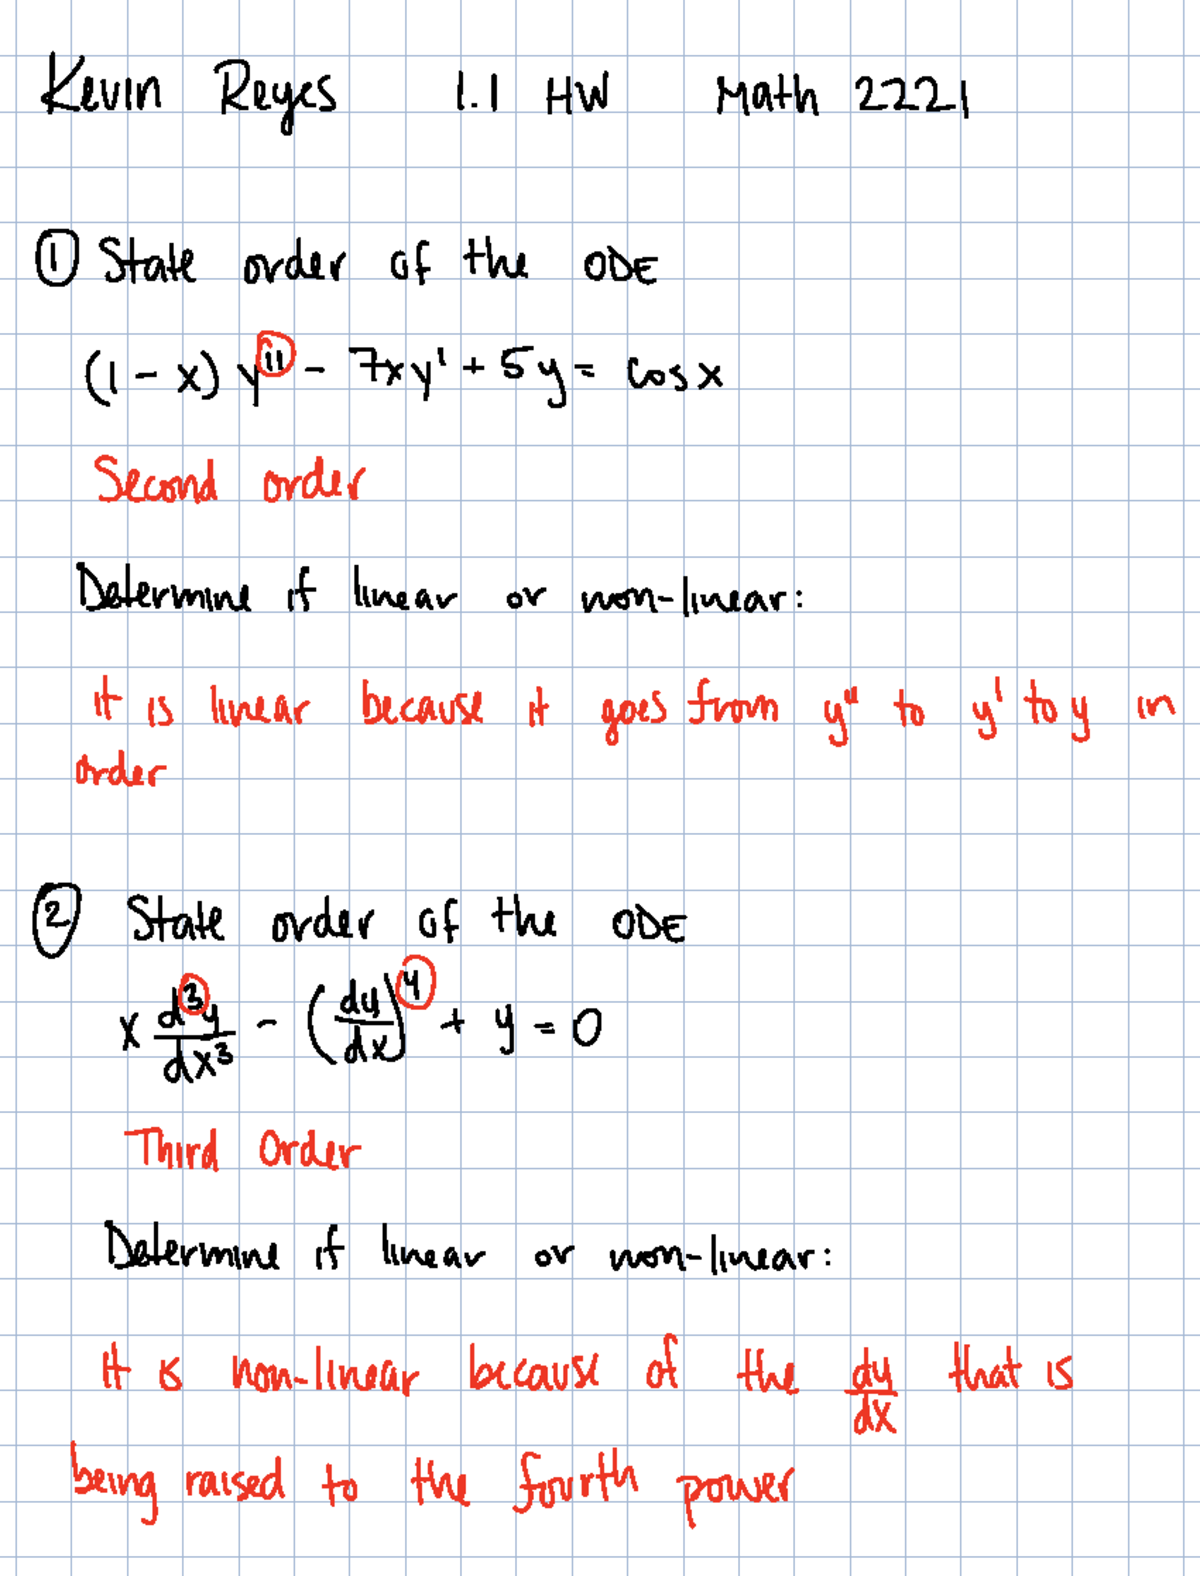 Kevin Reyes 1.1 HW Math 2221
① State order of the ODE
(1 - x) y'' - 7xy' + 5y = cos x
Second order
Determine if linear or non-linear:
it is linear because it goes from y'' to y' to y in
order
② State order of the ODE
x d³y/dx³ - (dy/dx)⁴ + y = 0
Third Order
Determine if linear or non-linear:
it is non-linear because of the dy/dx that is
being raised to the fourth power